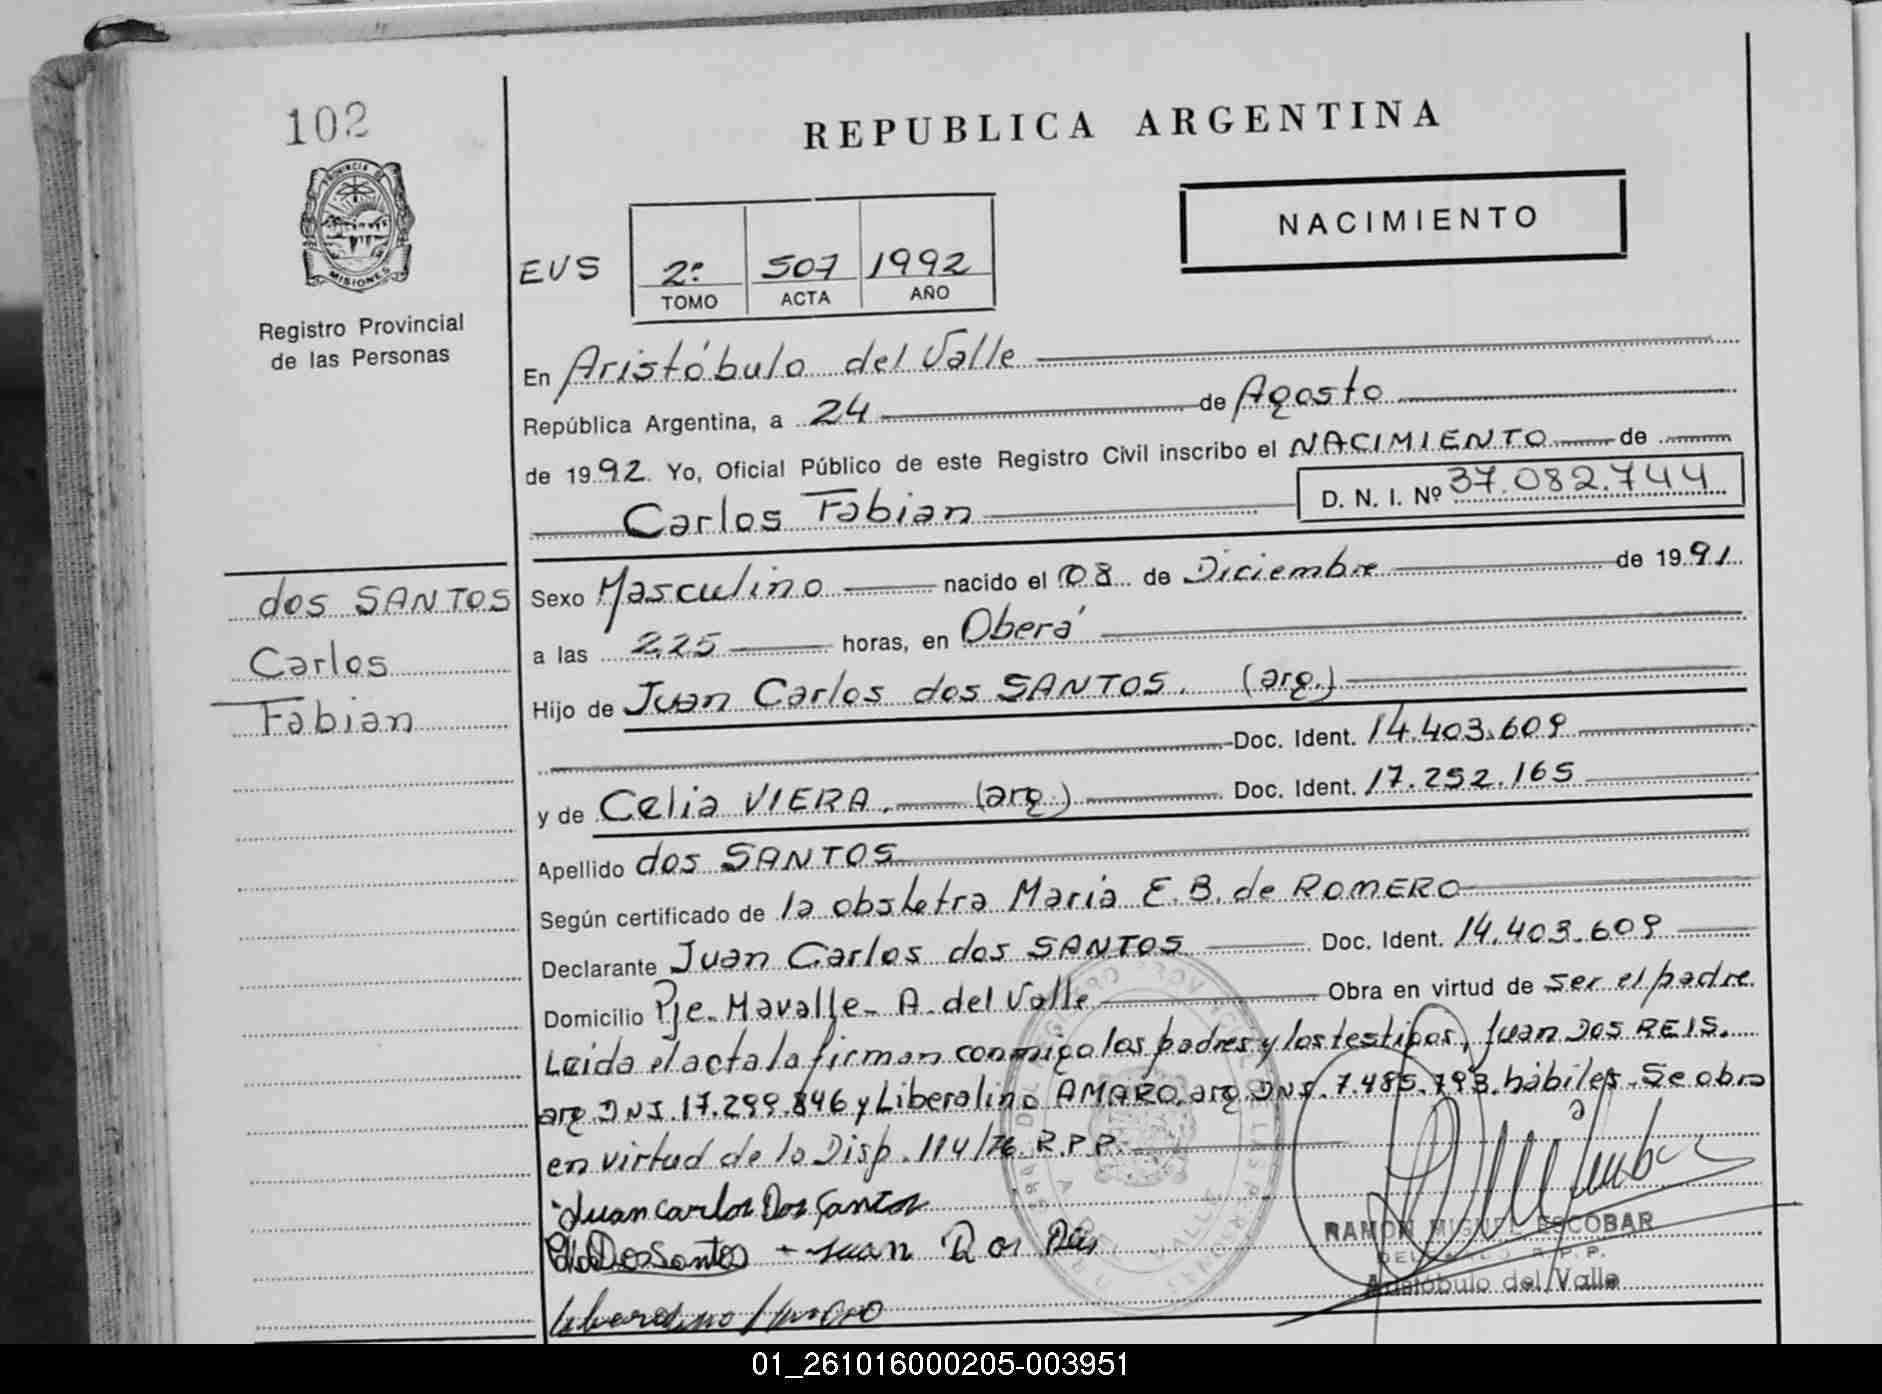 102
PROVINCIA DE
MISIONES
Registro Provincial
de las Personas
dos SANTOS
Carlos
Fabian
REPUBLICA ARGENTINA
NACIMIENTO
EVS 2º 507 1992
TOMO ACTA AÑO
En Aristóbulo del Valle
República Argentina, a 24 de Agosto
de 1992. Yo, Oficial Público de este Registro Civil inscribo el NACIMIENTO de
Carlos Fabian D. N. I. Nº 37.082.744
Sexo Masculino nacido el 08 de Diciembre de 1991
a las 2,25 horas, en Oberá
Hijo de Juan Carlos dos SANTOS. (arg.)
Doc. Ident. 14.403.609
y de Celia VIERA. (arg.) Doc. Ident. 17.252.165
Apellido dos SANTOS
Según certificado de la obstetra Maria E. B. de ROMERO
Declarante Juan Carlos dos SANTOS Doc. Ident. 14.403.609
Domicilio Pje. Mavalle - A. del Valle Obra en virtud de ser el padre.
Leida el acta la firman conmigo los padres y los testigos, Juan DOS REIS.
arg DNI. 17.299.846 y Liberalino AMARO, arg DNI. 7.485.793. hábiles. Se obra
en virtud de la Disp. 114/76. R.P.P.
Juan Carlos Dos Santos
Dos Santos - Juan Dos Reis
Amaro
RAMON MIGUEL ESCOBAR
DELEGADO R.P.P.
Aristóbulo del Valle
01_261016000205-003951